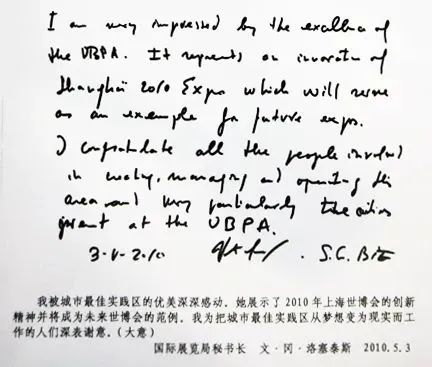 I am very impressed by the excellence of
the UBPA. It represents an innovation of
Shanghai 2010 Expo which will serve
as an example for future expos.
I congratulate all the people involved
in creating, managing and operating this
area and very particularly the cities
present at the UBPA.
3-V-2010 S.G. BIE
我被城市最佳实践区的优美深深感动。她展示了2010年上海世博会的创新
精神并将成为未来世博会的范例。我为把城市最佳实践区从梦想变为现实而工
作的人们深表谢意。(大意)
国际展览局秘书长 文·冈·洛塞泰斯 2010.5.3